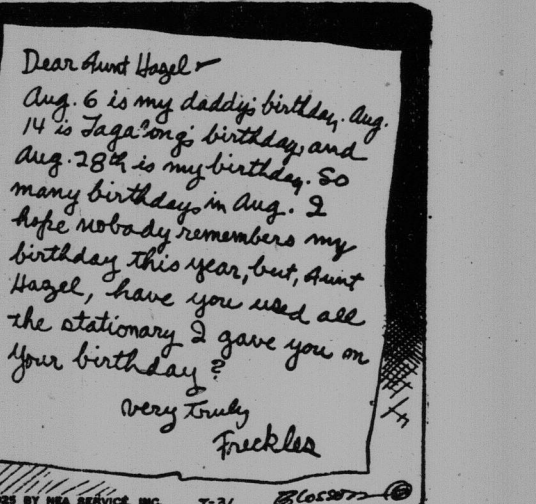 Dear Aunt Hazel –
Aug. 6 is my daddy's birthday. Aug.
14 is Taga?ong's birthday, and
Aug. 28th is my birthday. So
many birthdays in Aug. I
hope nobody remembers my
birthday this year, but, Aunt
Hazel, have you used all
the stationary I gave you on
your birthday?
very truly
Freckles
925 BY NEA SERVICE, INC. 7-31 Blosser